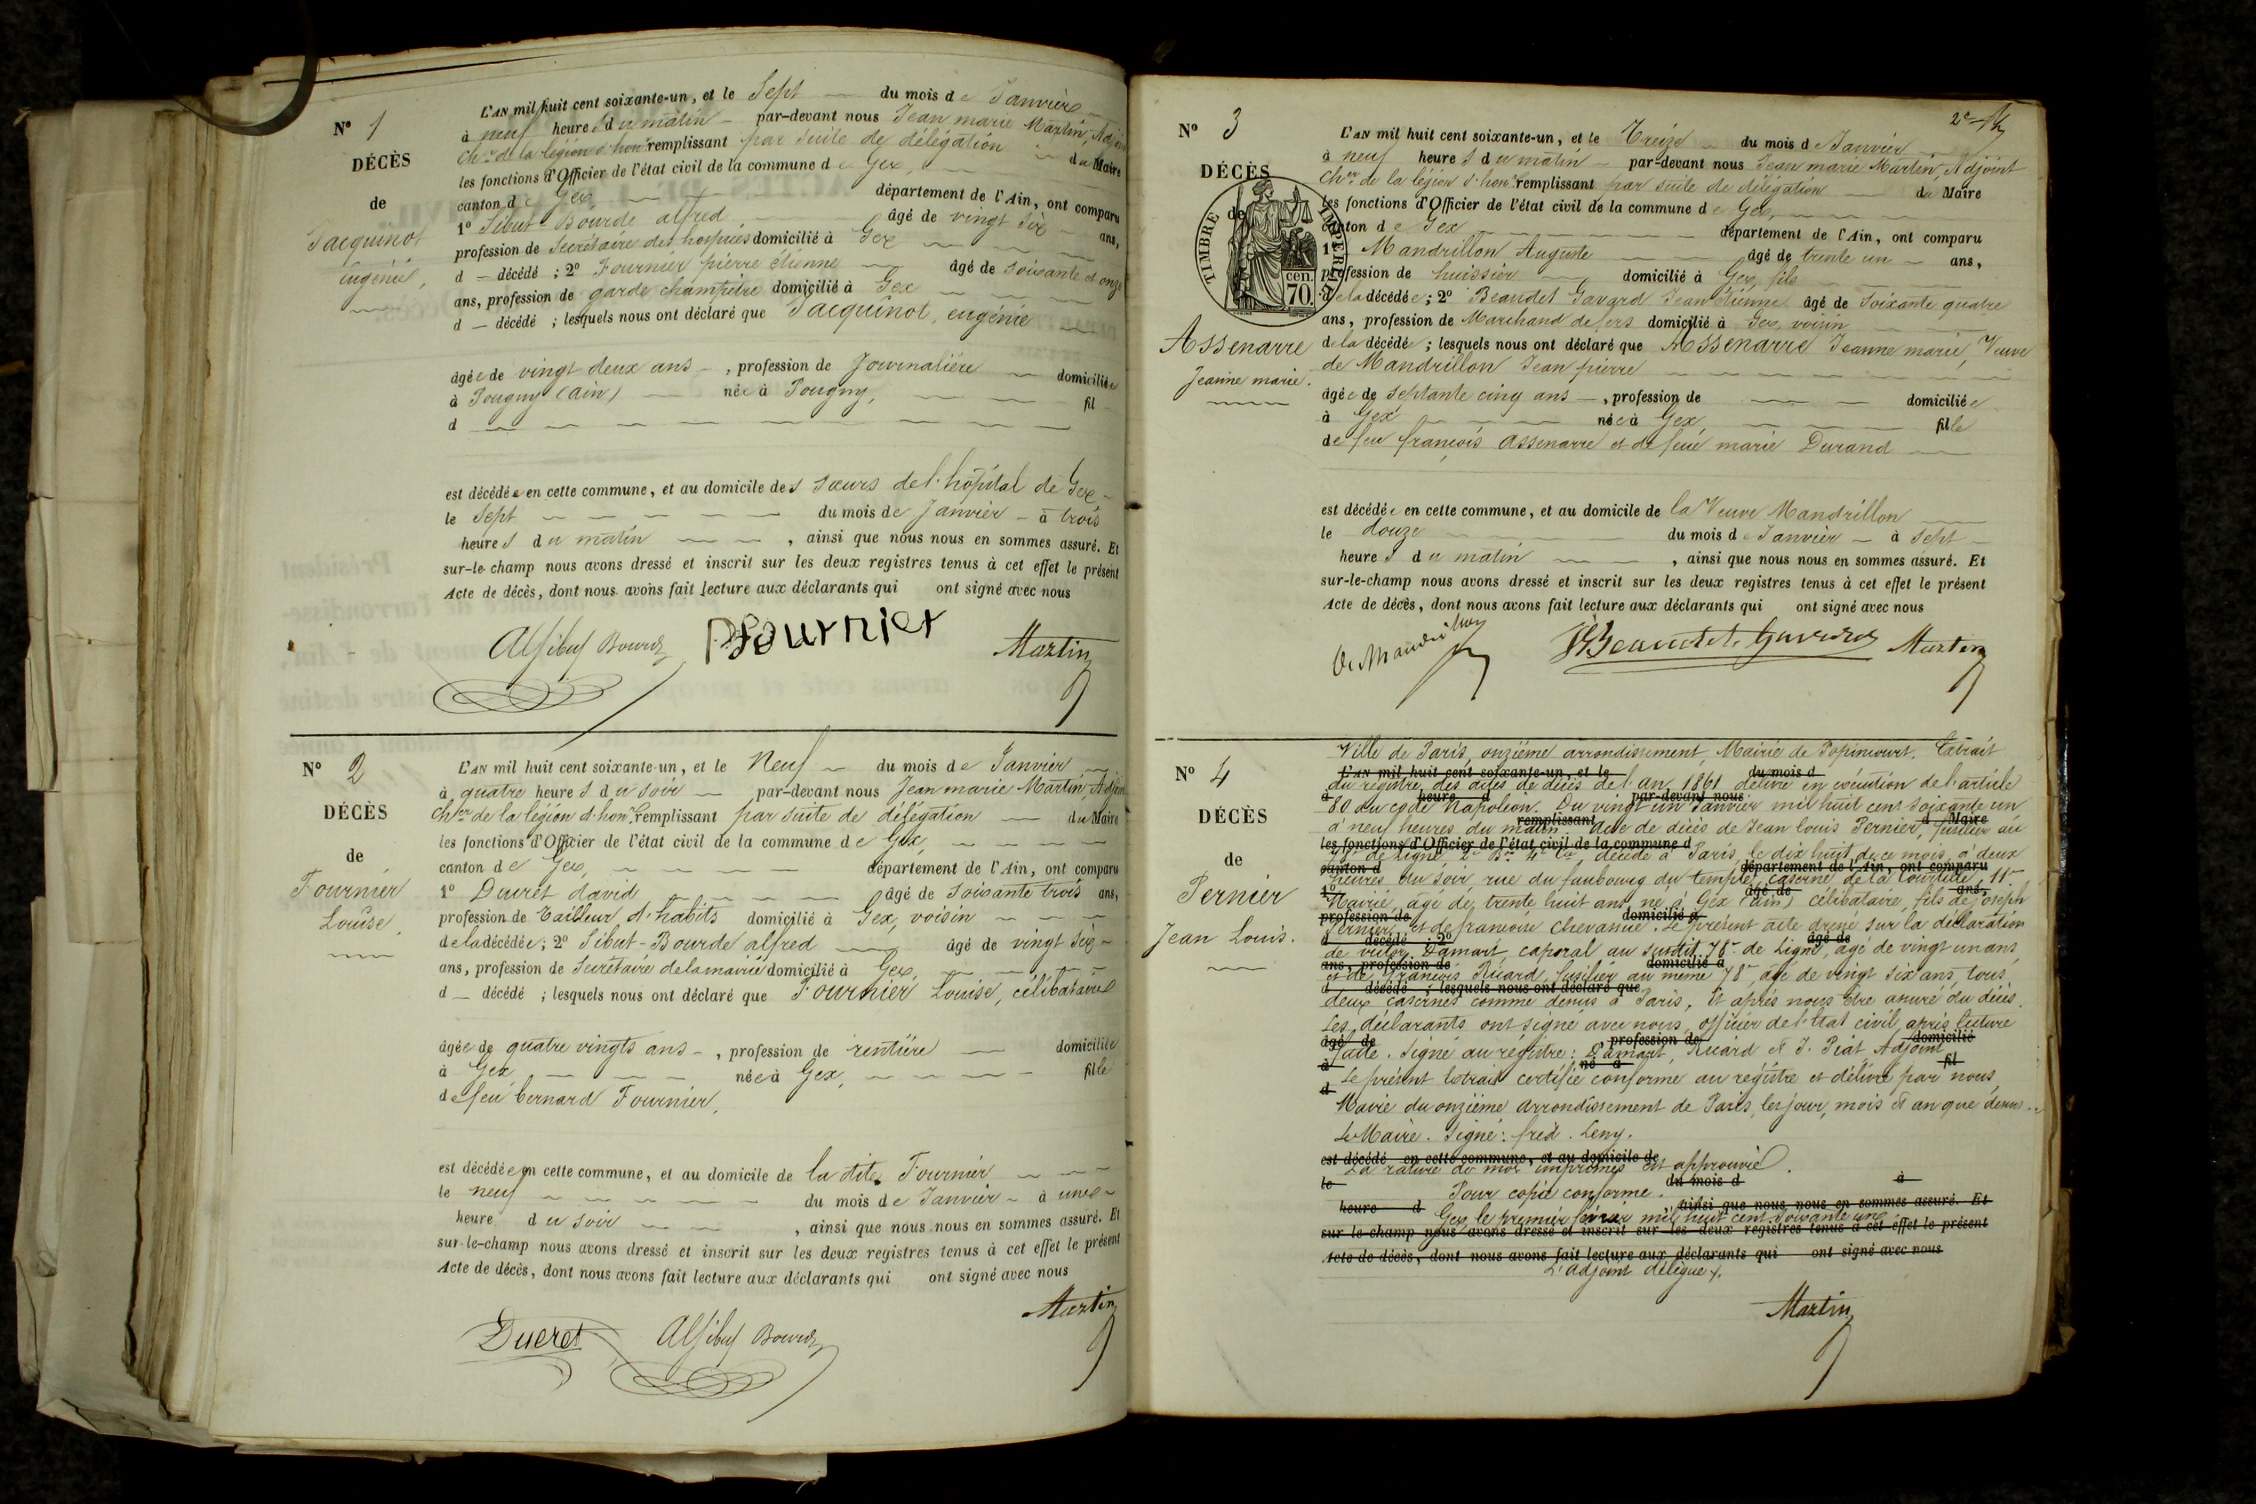 N° 1
DÉCÈS
de
Jacquinot
Eugénie,
L'AN mil huit cent soixante-un, et le Sept du mois de Janvier
à neuf heures du matin par-devant nous Jean marie Martin, Adjoint
Ch.er de la légion d'hon.r remplissant par suite de délégation du Maire
les fonctions d'Officier de l'état civil de la commune de Gex,
canton de Gex, département de l'Ain, ont comparu
1° Sibut-Bourde alfred âgé de vingt six ans,
profession de Secrétaire des hospices domicilié à Gex
d décédé ; 2° Fournier pierre étienne âgé de soixante et onze
ans, profession de garde champêtre domicilié à Gex
d décédé ; lesquels nous ont déclaré que Jacquinot, eugénie
âgée de vingt deux ans , profession de Journalière domiciliée
à Pougny (ain) née à Pougny, fil
d
est décédée en cette commune, et au domicile des sœurs de l'hôpital de Gex
le Sept du mois de Janvier à trois
heures du matin , ainsi que nous nous en sommes assuré. Et
sur-le-champ nous avons dressé et inscrit sur les deux registres tenus à cet effet le présent
Acte de décès, dont nous avons fait lecture aux déclarants qui ont signé avec nous
Al Sibut Bourde Fournier Martin
N° 2
DÉCÈS
de
Fournier
Louise.
L'AN mil huit cent soixante-un, et le Neuf du mois de Janvier
à quatre heures du soir par-devant nous Jean marie Martin, Adjoint
Ch.er de la légion d'hon.r remplissant par suite de délégation du Maire
les fonctions d'Officier de l'état civil de la commune de Gex,
canton de Gex, département de l'Ain, ont comparu
1° Ducret david âgé de soixante trois ans,
profession de Tailleur d'habits domicilié à Gex, voisin
de la décédée; 2° Sibut-Bourde alfred âgé de vingt six
ans, profession de Secrétaire de la mairie domicilié à Gex,
d décédé ; lesquels nous ont déclaré que Fournier Louise, célibataire
âgée de quatre vingts ans , profession de rentière domiciliée
à Gex née à Gex, fille
de feu bernard Fournier.
est décédée en cette commune, et au domicile de la dite Fournier
le neuf du mois de Janvier à une
heure du soir , ainsi que nous nous en sommes assuré. Et
sur-le-champ nous avons dressé et inscrit sur les deux registres tenus à cet effet le présent
Acte de décès, dont nous avons fait lecture aux déclarants qui ont signé avec nous
Ducret Al Sibut Bourde Martin
2e
N° 3
DÉCÈS
de
TIMBRE IMPERIAL
cen.
70.
Assenarre
Jeanne marie.
L'AN mil huit cent soixante-un, et le Treize du mois de Janvier
à neuf heures du matin par-devant nous Jean marie Martin, Adjoint
Ch.er de la légion d'hon.r remplissant par suite de délégation du Maire
les fonctions d'Officier de l'état civil de la commune de Gex,
canton de Gex département de l'Ain, ont comparu
1° Mandrillon Auguste âgé de trente un ans,
profession de huissier domicilié à Gex, fils
de la décédée; 2° Beaudet Gavard Jean étienne âgé de soixante quatre
ans, profession de Marchand de fers domicilié à Gex, voisin
de la décédée ; lesquels nous ont déclaré que Assenarre Jeanne marie, Veuve
de Mandrillon Jean pierre
âgée de septante cinq ans , profession de domiciliée
à Gex née à Gex, fille
de feu françois Assenarre et de feue marie Durand
est décédée en cette commune, et au domicile de la Veuve Mandrillon
le douze du mois de Janvier à sept
heures du matin , ainsi que nous nous en sommes assuré. Et
sur-le-champ nous avons dressé et inscrit sur les deux registres tenus à cet effet le présent
Acte de décès, dont nous avons fait lecture aux déclarants qui ont signé avec nous
Mandrillon Beaudet Gavard Martin
N° 4
DÉCÈS
de
Pernier
Jean Louis.
Ville de Paris, onzième arrondissement, Mairie de Popincourt. Extrait
L'AN mil huit cent soixante-un, et le du mois d
du registre des actes de décès de l'an 1861 délivré en exécution de l'article
à heure d par-devant nous
80 du code Napoléon. Du vingt un Janvier mil huit cent soixante un
remplissant d Maire
à neuf heures du matin. Acte de décès de Jean Louis Pernier, fusilier au
les fonctions d'Officier de l'état civil de la commune d
78e de Ligne, 2e B.on 4e C.ie, décédé à Paris, le dix huit de ce mois, à deux
canton d département de l'Ain, ont comparu
heures du soir, rue du faubourg du temple, caserne de la Courtille, 11e
1° âgé de ans,
Mairie, âgé de trente huit ans, né à Gex (ain) célibataire, fils de joseph
profession de domicilié à
Pernier et de françoise Chevassue. Le présent acte dressé sur la déclaration
d décédé ; 2° âgé de
de victor Damart, caporal au susdit 78e de Ligne, âgé de vingt un ans,
ans, profession de domicilié à
et de françois Ricard, fusilier au même 78e, âgé de vingt six ans, tous
d décédé ; lesquels nous ont déclaré que
deux casernés comme dessus à Paris. Et après nous être assuré du décès.
Les déclarants ont signé avec nous, officier de l'état civil, après lecture
âgé de profession de domicilié
faite. Signé au registre: Damart, Ricard et J. Piat, Adjoint
à né à fil
Le présent Extrait certifié conforme au registre et délivré par nous
d
Mairie du onzième arrondissement de Paris, les jour, mois et an que dessus.
Le Maire. Signé: fréd. Leny.
est décédé en cette commune, et au domicile de
La rature de mots imprimés est approuvée.
le du mois d à
Pour copie conforme.
heure d ainsi que nous nous en sommes assuré. Et
Gex, le premier février mil huit cent soixante un
sur-le-champ nous avons dressé et inscrit sur les deux registres tenus à cet effet le présent
Acte de décès, dont nous avons fait lecture aux déclarants qui ont signé avec nous
L'adjoint délégué,
Martin